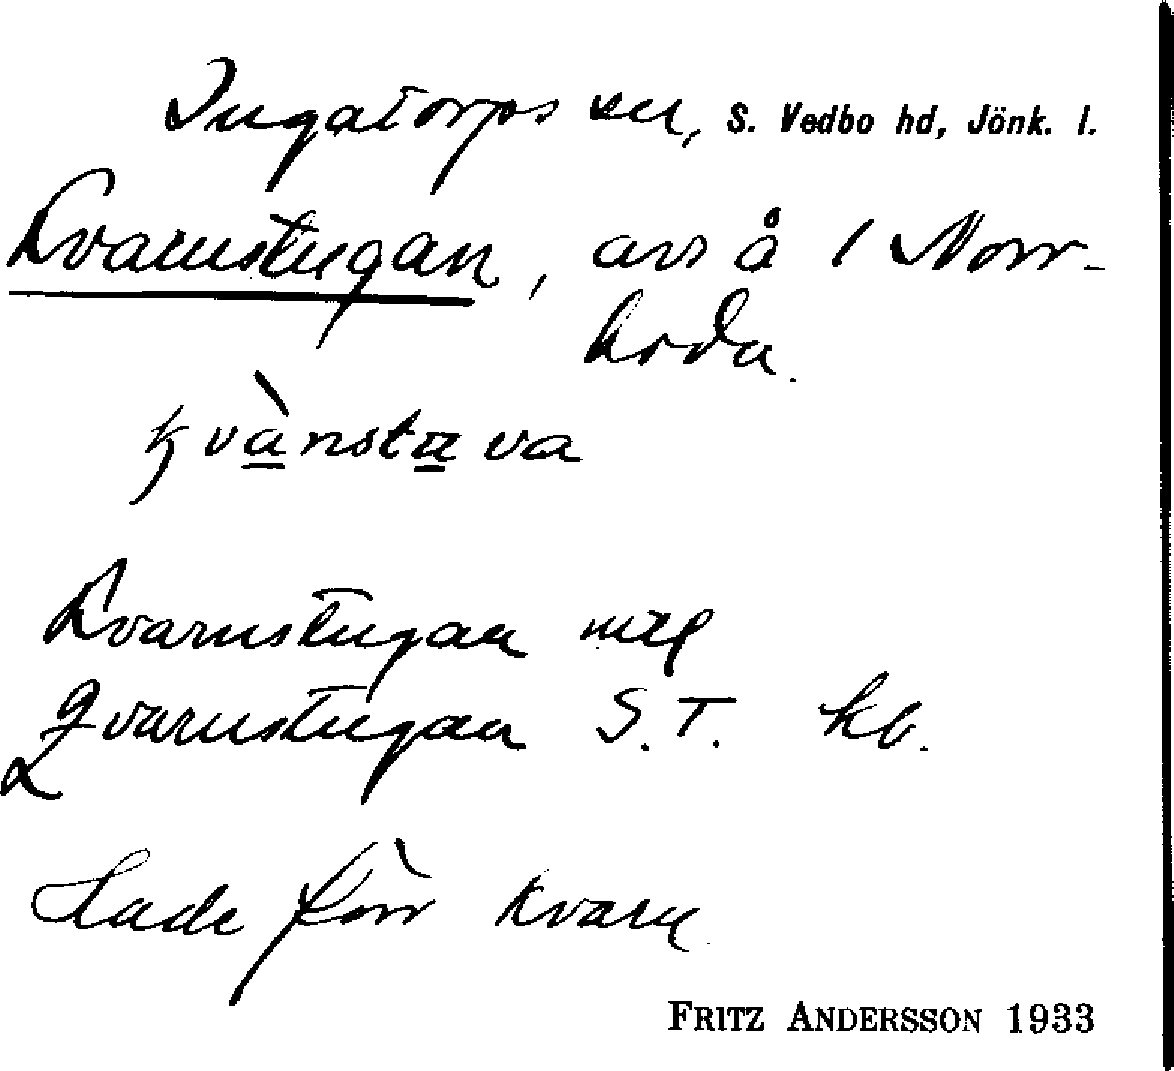 Ingatorps sn, S. Vedbo hd, Jönk. l.
Kvarnstugan, avs å 1 Norr-
hoda.
Kvarnstugan mtl
Qvarnstugan S.T. kb.
Hade förr kvarn
FRITZ ANDERSSON 1933